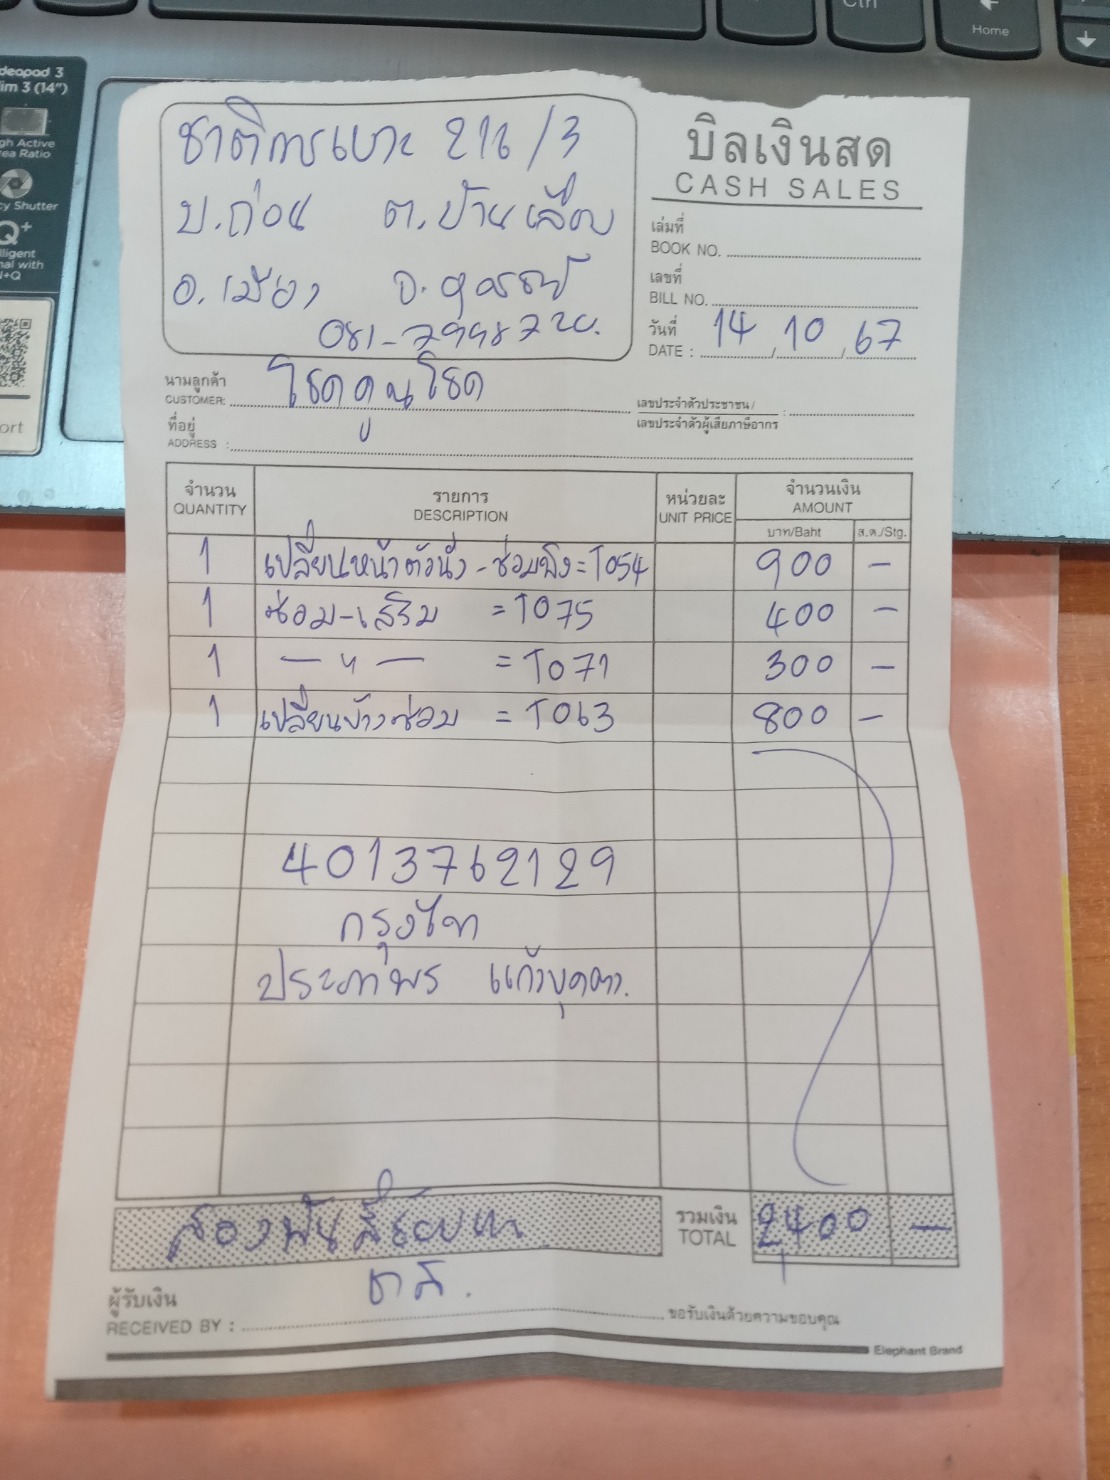 Ctrl
Home
ideapad 3
lim 3 (14")
gh Active
rea Ratio
cy Shutter
Q+
elligent
nal with
ort
ชาติการเบาะ 216/3
บ.ถ่อน ต.บ้านเลื่อม
อ.เมือง จ.อุดรธานี
บิลเงินสด
CASH SALES
เล่มที่
BOOK NO.
เลขที่
BILL NO.
วันที่
DATE : 14, 10, 67
นามลูกค้า
CUSTOMER: โชคคูนโชค
เลขประจำตัวประชาชน/
เลขประจำตัวผู้เสียภาษีอากร :
ที่อยู่
ADDRESS :
จำนวน รายการ หน่วยละ จำนวนเงิน
QUANTITY DESCRIPTION UNIT PRICE AMOUNT
บาท/Baht ส.ต./Stg.
1 เปลี่ยนหน้าตัวนั่ง - ซ่อมพิง = T054 900 —
1 ซ่อม - เสริม = T075 400 —
1 — " — = T071 300 —
1 เปลี่ยนข้างซ่อม = T063 800 —
4013762129
กรุงไทย
ประภาพร แก้วบุคตา.
สองพันสี่ร้อยบาท รวมเงิน
TOTAL 2400 —
ผู้รับเงิน
RECEIVED BY : ชาติ. ขอรับเงินด้วยความขอบคุณ
Elephant Brand